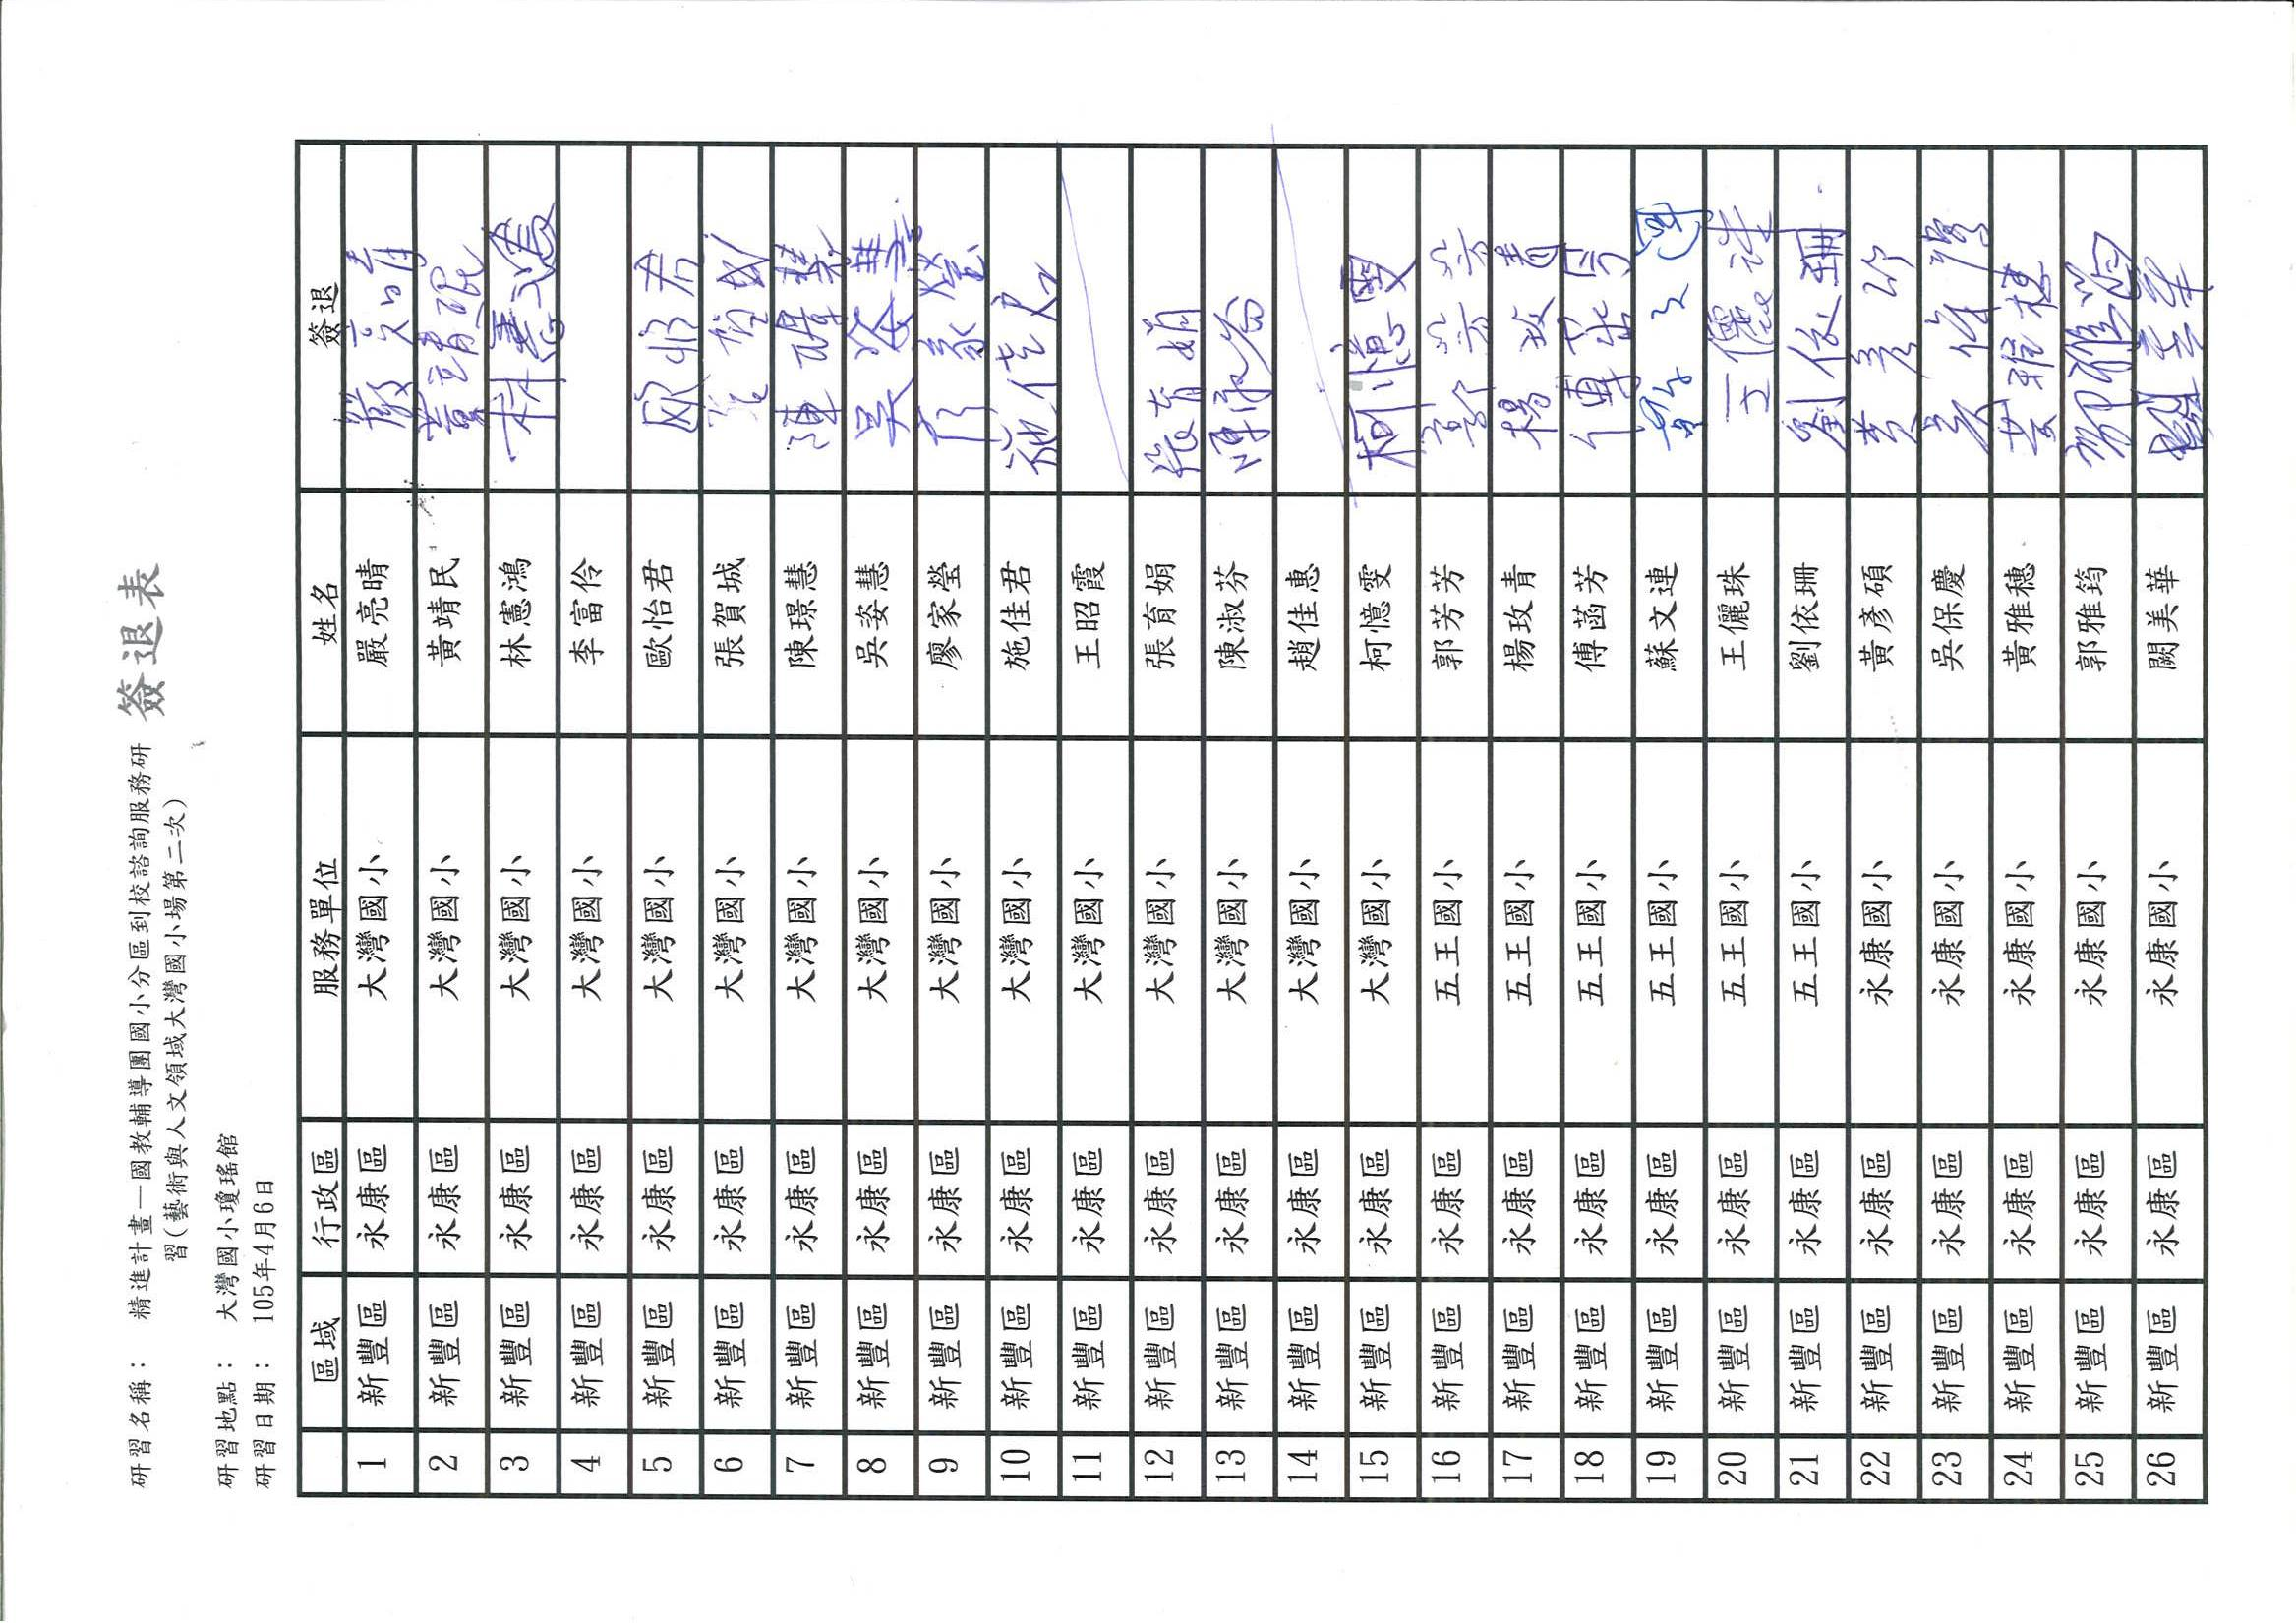 簽退表
研習名稱： 精進計畫—國教輔導團國小分區到校諮詢服務研
習(藝術與人文領域大灣國小場第二次)
研習地點： 大灣國小瓊瑤館
研習日期： 105年4月6日
區域 行政區 服務單位 姓名 簽退
1 新豐區 永康區 大灣國小 嚴亮晴 嚴亮晴
2 新豐區 永康區 大灣國小 黃靖民 黃靖珉
3 新豐區 永康區 大灣國小 林憲鴻 林憲鴻
4 新豐區 永康區 大灣國小 李富伶
5 新豐區 永康區 大灣國小 歐怡君 歐怡君
6 新豐區 永康區 大灣國小 張賀城
7 新豐區 永康區 大灣國小 陳璟慧 陳璟慧
8 新豐區 永康區 大灣國小 吳姿慧 吳姿慧
9 新豐區 永康區 大灣國小 廖家瑩 廖家瑩
10 新豐區 永康區 大灣國小 施佳君 施佳君
11 新豐區 永康區 大灣國小 王昭霞
12 新豐區 永康區 大灣國小 張育娟 張育娟
13 新豐區 永康區 大灣國小 陳淑芬 陳淑芬
14 新豐區 永康區 大灣國小 趙佳惠
15 新豐區 永康區 大灣國小 柯憶雯 柯憶雯
16 新豐區 永康區 五王國小 郭芳芳 郭芳芳
17 新豐區 永康區 五王國小 楊玫青 楊玫青
18 新豐區 永康區 五王國小 傅菡芳 傅菡芳
19 新豐區 永康區 五王國小 蘇文連 蘇文連
20 新豐區 永康區 五王國小 王儷珠 王儷珠
21 新豐區 永康區 五王國小 劉依珊 劉依珊
22 新豐區 永康區 永康國小 黃彥碩 黃彥碩
23 新豐區 永康區 永康國小 吳保慶
24 新豐區 永康區 永康國小 黃雅穗 黃雅穗
25 新豐區 永康區 永康國小 郭雅筠 郭雅筠
26 新豐區 永康區 永康國小 闕美華 闕美華